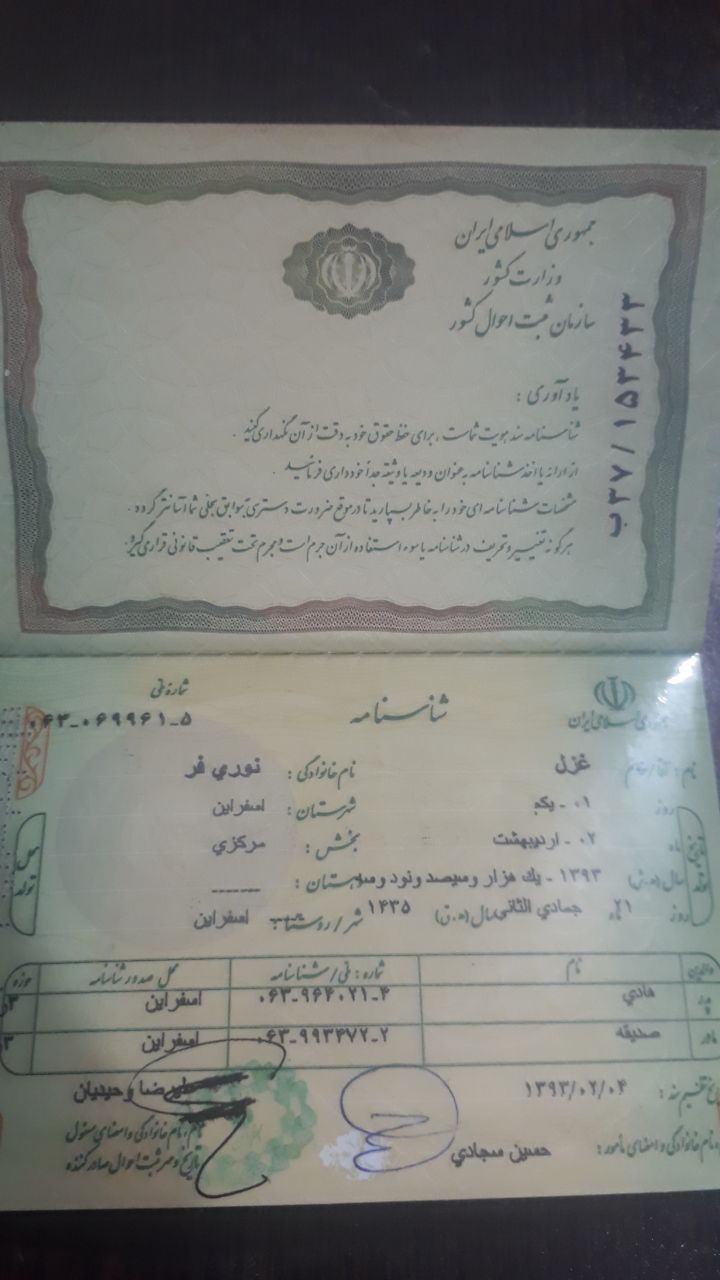 جمهوری اسلامی ایران
وزارت کشور
سازمان ثبت احوال کشور
ب۳۷/۱۵۳۴۳۳
یادآوری :
شناسنامه سند هویت شماست ، برای حفظ حقوق خود به دقت از آن نگهداری کنید .
از ارائه یا اخذ شناسنامه به عنوان ودیعه یا وثیقه جداً خودداری فرمائید .
مشخصات شناسنامه ای خود را به خاطر بسپارید تا در موقع ضرورت دسترسی به سوابق سجلی شما آسانتر گردد .
هرگونه تغییر و تحریف در شناسنامه یا سوء استفاده از آن جرم است و مجرم تحت تعقیب قانونی قرار می گیرد .
جمهوری اسلامی ایران
شناسنامه
شماره ملی
۰۶۳-۰۶۹۹۶۱-۵
نام : آقا/خانم غزل نام خانوادگی : نوري فر
تاریخ تولد
روز ۰۱ - يكم شهرستان : اسفراين
ماه ۰۲ - ارديبهشت بخش : مرکزي
سال (ه.ش) ۱۳۹۳ - يك هزار وسيصد ونود وسه دهستان : ------
روز ۲۱ ماه جمادي الثاني سال (ه.ق) ۱۴۳۵ شهر / روستا : اسفراين
محل تولد
والدین نام شماره : ملی / شناسنامه محل صدور شناسنامه حوزه
پدر هادي ۰۶۳-۹۶۴۰۲۱-۴ اسفراين
مادر صديقه ۰۶۳-۹۹۳۴۷۲-۲ اسفراين
تاریخ تنظیم سند : ۱۳۹۳/۰۲/۰۴
عليرضا وحيديان
نام خانوادگی و امضای مامور : حسين سجادي
نام ، نام خانوادگی و امضای مسئول
تاریخ و مهر ثبت احوال صادر کننده